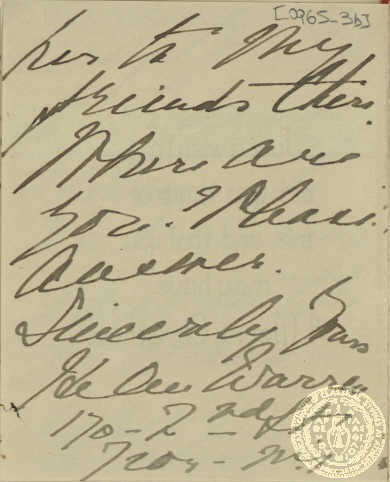 [0965-3b]
her to my
friends there.
Where are
you? Please
answer.
Sincerely Yours
Helen Warren
170-2nd St
Troy - N.Y.